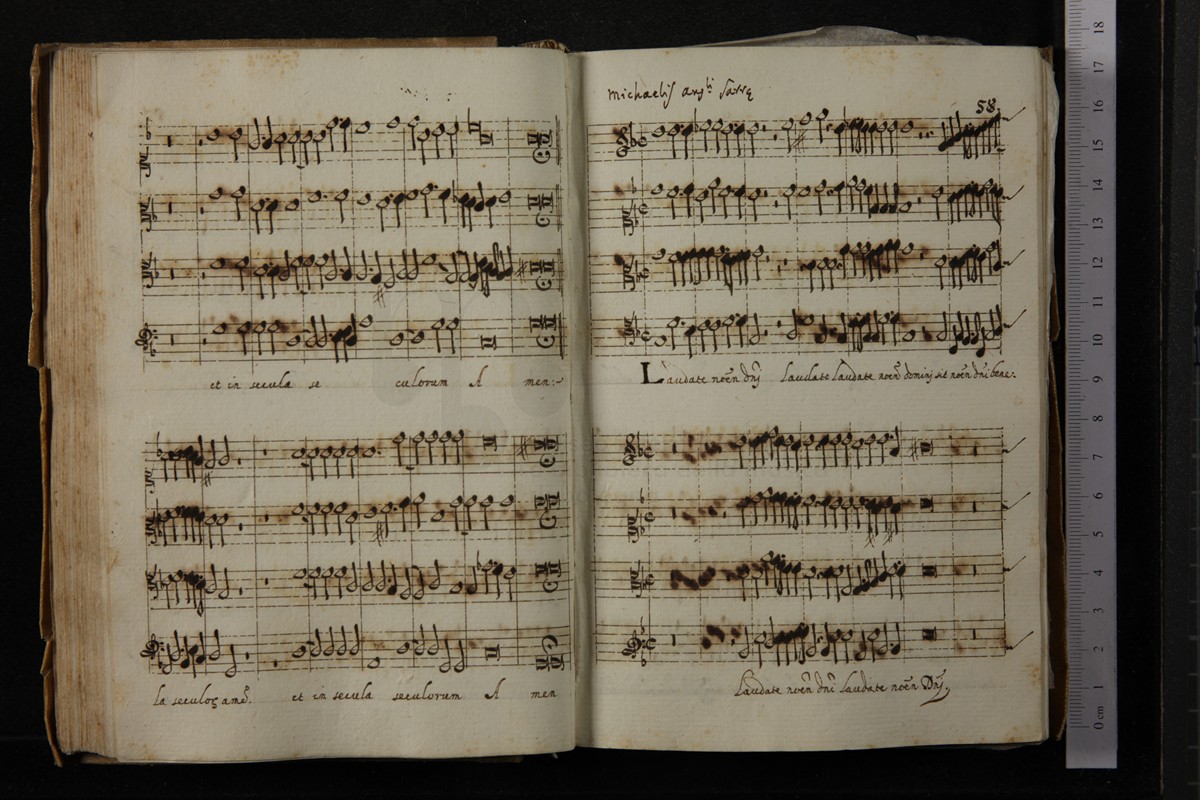 et in secula se culorum A men:~
la seculoȝ amē. et in secula seculorum A men
michaelis angli sarrę
58
Laudate noēn dnj laudate laudate noēn dominj sit noēn dnj bene:
Laudate noēn dnj laudate noēn Dnj,
18
17
16
15
14
13
12
11
10
9
8
7
6
5
4
3
2
1
0 cm